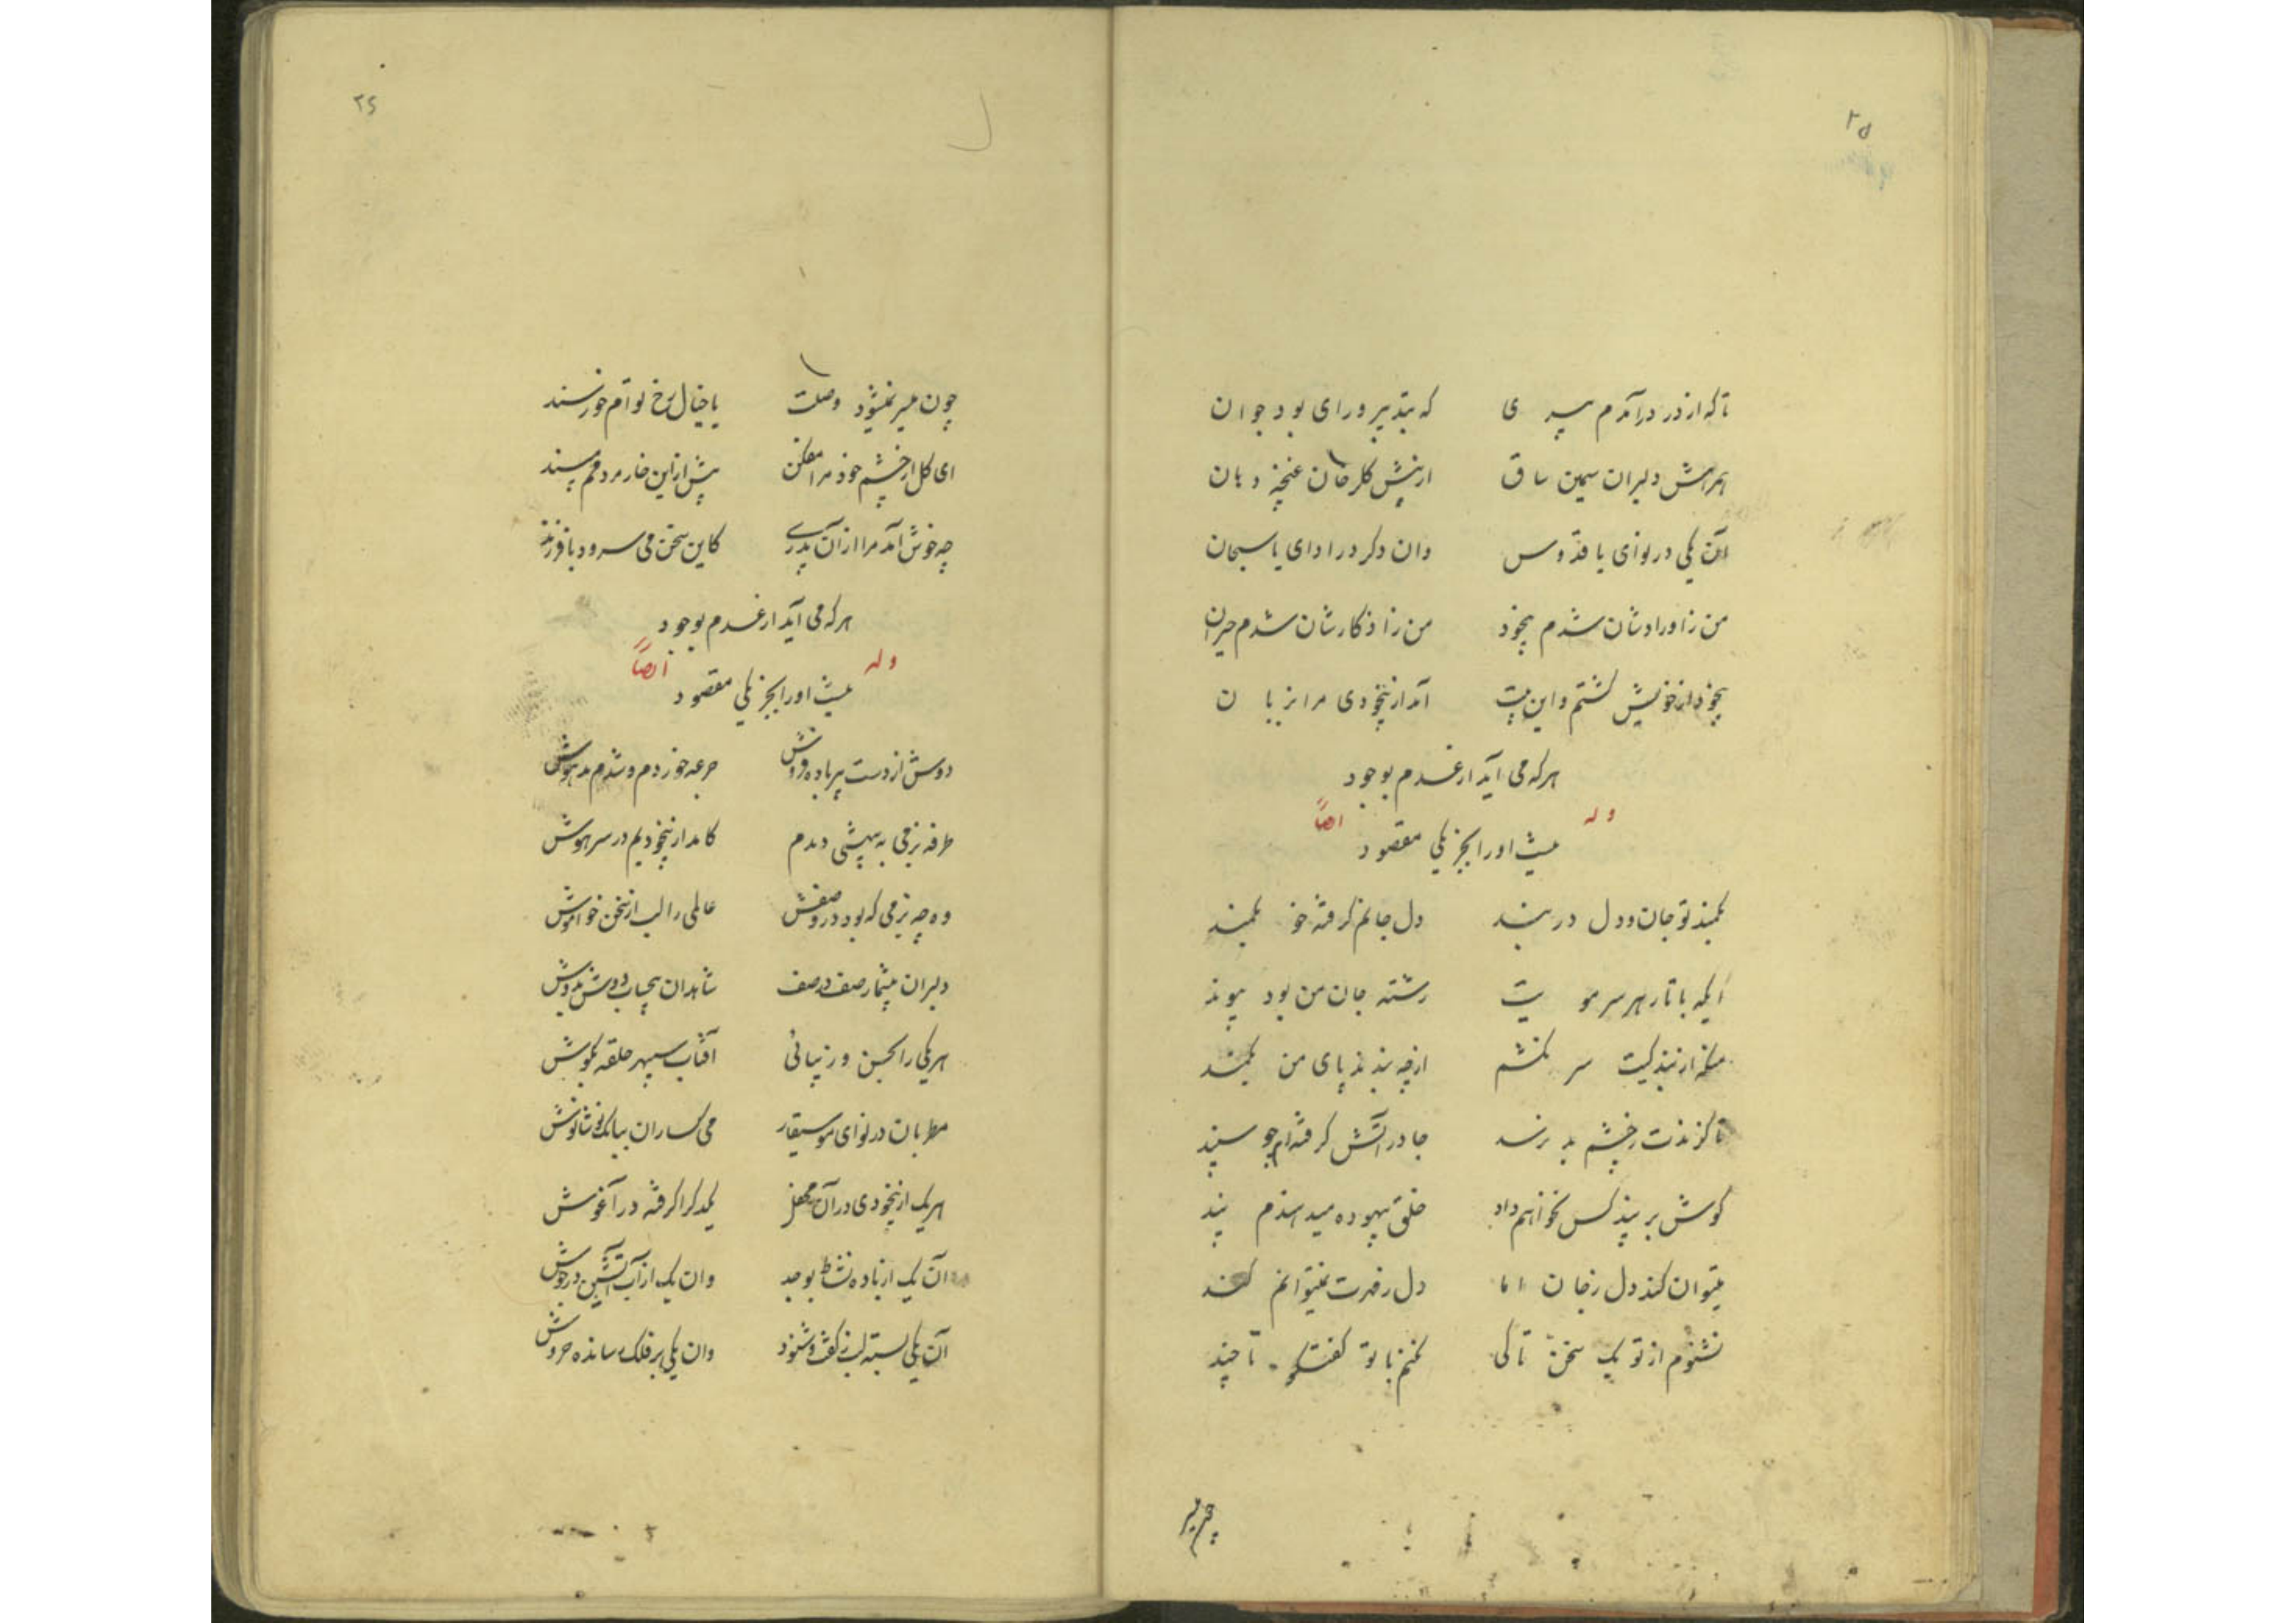 ۲۵
تا که از در درآمدم پیری که بتدبیر و رای بود جوان
همرهش دلبران سیمین ساق از پیش کلرخان غنچه دهان
آن یکی در نوای یا قدّوس وان دکر در ادای یا سبحان
من ز اورادشان شدم بیخود من ز اذکارشان شدم حیران
بیخود از خویش کشتم و این بیت آمد از بیخودی مرا بزبان
هر که می آید از عدم بوجود
وله ایضاً
نیست او را بجز یکی مقصود
بکمند تو جان و دل در بند دل جانم کرفته خو بکمند
ایکه با تار هر سر مویت رشته جان من بود پیوند
منکه از بند کیت سر نکشم از چه بندند پای من بکمند
تا کزندت ز چشم بد نرسد جا در آتش کرفته‌ام چو سپند
کوش بر پند کس نخواهم داد خلق بیهوده میدهندم پند
میتوان کند دل ز جان اما دل ز مهرت نمیتوانم کند
نشنوم از تو یک سخن تا کی نکنم با تو گفتگو تا چند
چون میسر
۲۶
چون میسر نمیشود وصلت با خیال رخ توام خورسند
ای کل از چشم خود مرا مفکن بیش ازین خار مردمم مپسند
چه خوش آمد مرا از آن پدری کاین سخن می سرود با فرزند
هر که می آید از عدم بوجود
وله ایضاً
نیست او را بجز یکی مقصود
دوش از دست پیر باده فروش جرعه خوردم و شدم مدهوش
طرفه بزمی به بیهشی دیدم کامد از بیخودیم در سر هوش
وه چه بزمی که بود در وصفش عالمی را لب از سخن خواموش
دلبران بیشمار صف در صف شاهدان بیحساب دوش بدوش
هر یکی را بحسن و زیبائی آفتاب سپهر حلقه بکوش
مطربان در نوای موسیقار می کساران ببانک نوشانوش
هر یک از بیخودی در آن محفل یکدکر را کرفته در آغوش
آن یک از باده نشاط بوجد وان یک از آب آتشین در جوش
آن یکی بسته لب ز کفت و شنود وان یکی بر فلک رسانده خروش